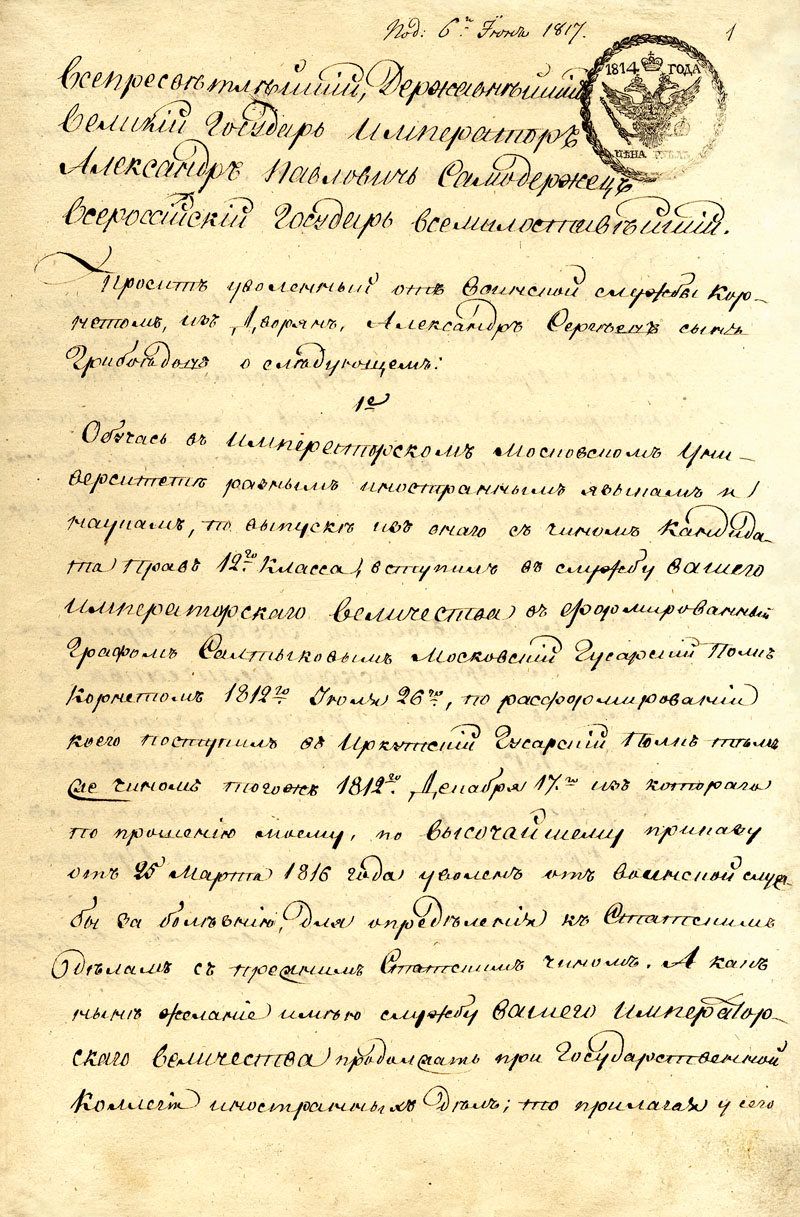 Под: 6го Iюня 1817.
1
1814 ГОДА
ЦѢНА РУБЛЬ
Всепресвѣтлѣйшiй, Державнѣйшiй
Великiй Государь Императоръ
Александръ Павловичь Самодержецъ
Всероссiйскiй Государь Всемилостивѣйшiй.
Проситъ уволенный отъ воинской службы Кор-
нетомъ, изъ Дворянъ, Александръ Сергѣевъ сынъ
Грибоѣдовъ о слѣдующемъ:
1е
Обучась въ Императорскомъ Московскомъ Уни-
верситетѣ разнымъ иностраннымъ языкамъ и
наукамъ, по выпускѣ изъ онаго съ чиномъ Кандида-
та Правъ 12го Класса, вступилъ въ службу Вашего
Императорскаго Величества въ формированный
Графомъ Салтыковымъ Московскiй Гусарскiй Полкъ
Корнетомъ 1812го Iюля 26го, по расформированiи
коего поступилъ въ Иркутскiй Гусарскiй Полкъ тѣмъ
же чиномъ тогожъ 1812го Декабря 17го изъ котораго
по прошенiю моему, по Высочайшему приказу
отъ 25 Марта 1816 года уволенъ отъ воинской служ-
бы за болѣзнiю, для опредѣленiя къ Статскимъ
дѣламъ съ прежнимъ Статскимъ чиномъ. А какъ
нынѣ желанiе имѣю службу Вашего Император-
скаго Величества продолжать при Государственной
Коллегiи иностранныхъ Дѣлъ; то прилагая у сего